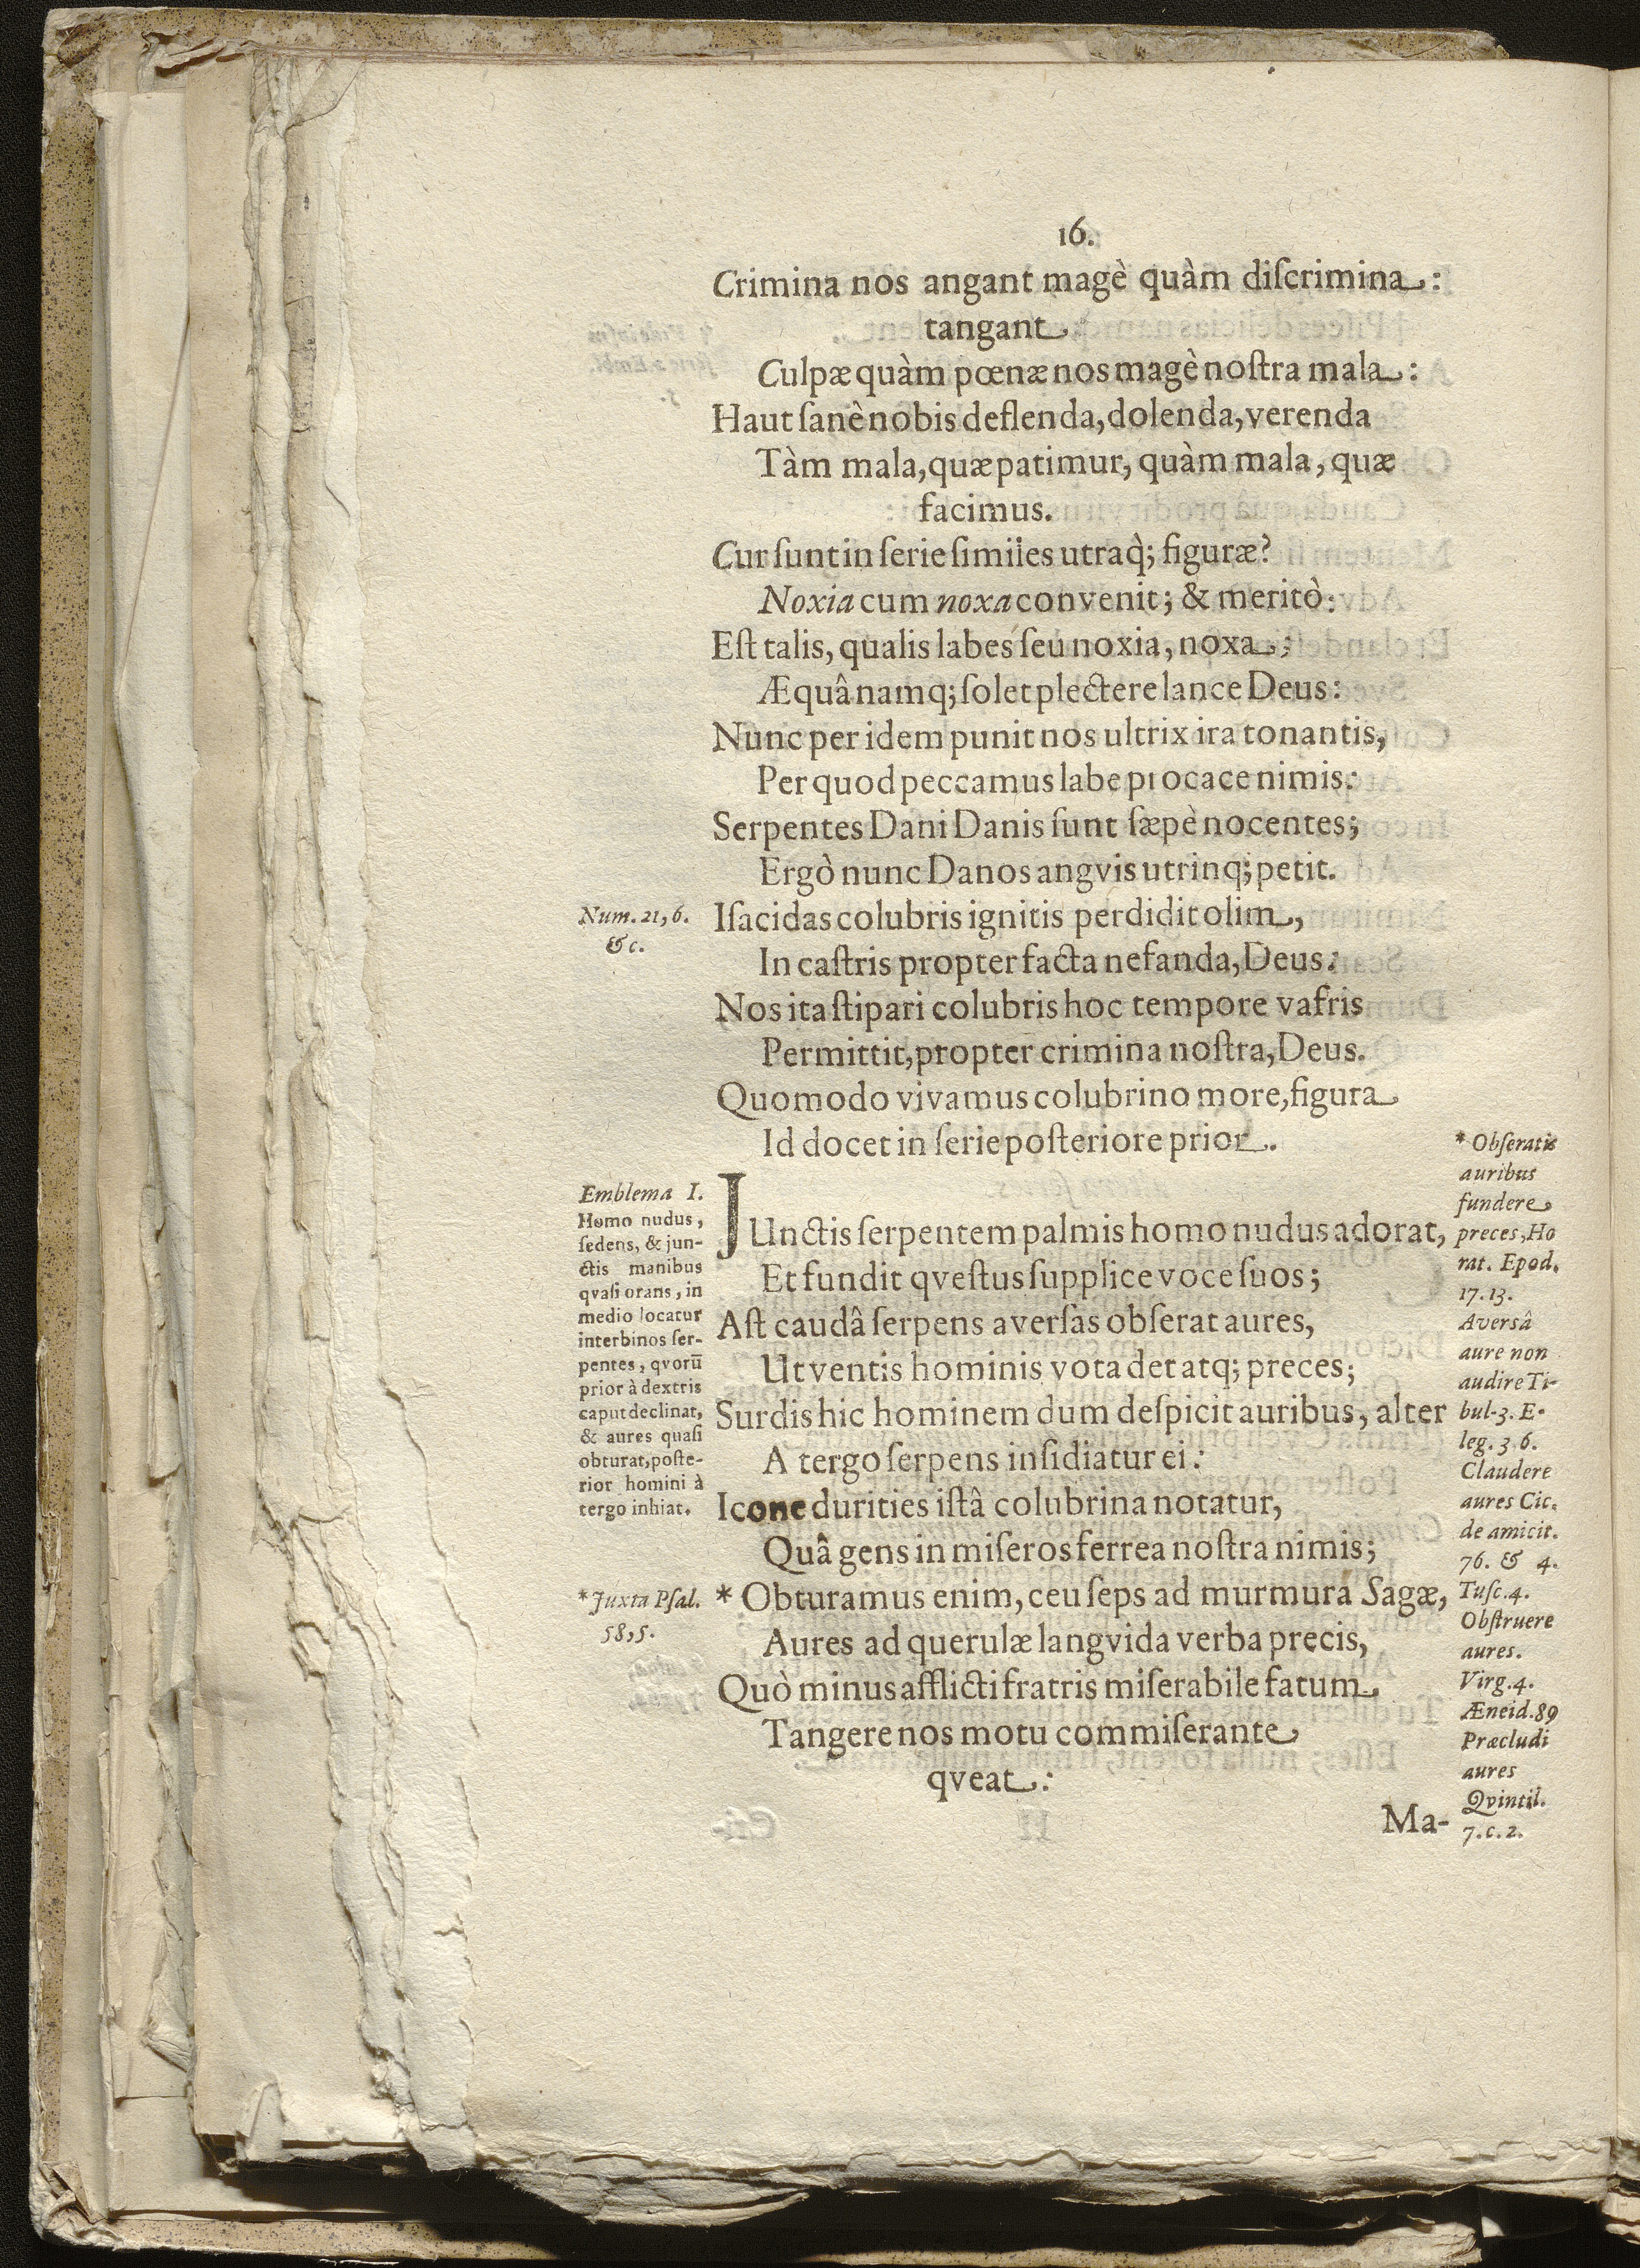 16.
Crimina nos angant magè quàm diſcrimina:
tangant
Culpæ quàm pœnæ nos magè noſtra mala:
Haut ſanè nobis deflenda, dolenda, verenda
Tàm mala, quæ patimur, quàm mala, quæ
facimus.
Cur ſunt in ſerie ſimiies utraq̀; figuræ?
Noxia cum noxa convenit; & meritò:
Eſt talis, qualis labes ſeu noxia, noxa;
Æquâ namq; ſolet plectere lance Deus:
Nunc per idem punit nos ultrix ira tonantis,
Per quod peccamus labe procace nimis:
Serpentes Dani Danis ſunt ſæpè nocentes;
Ergò nunc Danos angvis utrinq; petit.
Num. 21, 6.
&c.
Iſacidas colubris ignitis perdidit olim,
In caſtris propter facta nefanda, Deus:
Nos ita ſtipari colubris hoc tempore vafris
Permittit, propter crimina noſtra, Deus.
Quomodo vivamus colubrino more, figura
Id docet in ſerie poſteriore prior.
Emblema I.
Homo nudus,
ſedens, & jun-
ctis manibus
qvaſi orans, in
medio locatur
inter binos ſer-
pentes, qvorū
prior à dextris
caput declinat,
& aures quaſi
obturat, poſte-
rior homini à
tergo inhiat.
JUnctis ſerpentem palmis homo nudus adorat,
Et fundit qveſtus ſupplice voce ſuos;
Aſt caudâ ſerpens averſas obſerat aures,
Ut ventis hominis vota det atq; preces;
Surdis hic hominem dum deſpicit auribus, alter
A tergo ſerpens inſidiatur ei:
Icone durities iſtâ colubrina notatur,
Quâ gens in miſeros ferrea noſtra nimis;
* Juxta Pſal.
58, 5.
* Obturamus enim, ceu ſeps ad murmura Sagæ,
Aures ad querulæ langvida verba precis,
Quò minus afflicti fratris miſerabile fatum
Tangere nos motu commiſerante
qveat:
* Obſeratis
auribus
fundere
preces, Ho
rat. Epod.
17. 13.
Averſâ
aure non
audire Ti-
bul. 3. E-
leg. 3 6.
Claudere
aures Cic.
de amicit.
76. & 4.
Tuſc. 4.
Obſtruere
aures.
Virg. 4.
Æneid. 89
Præcludi
aures
Qvintil.
7. c. 2.
Ma-